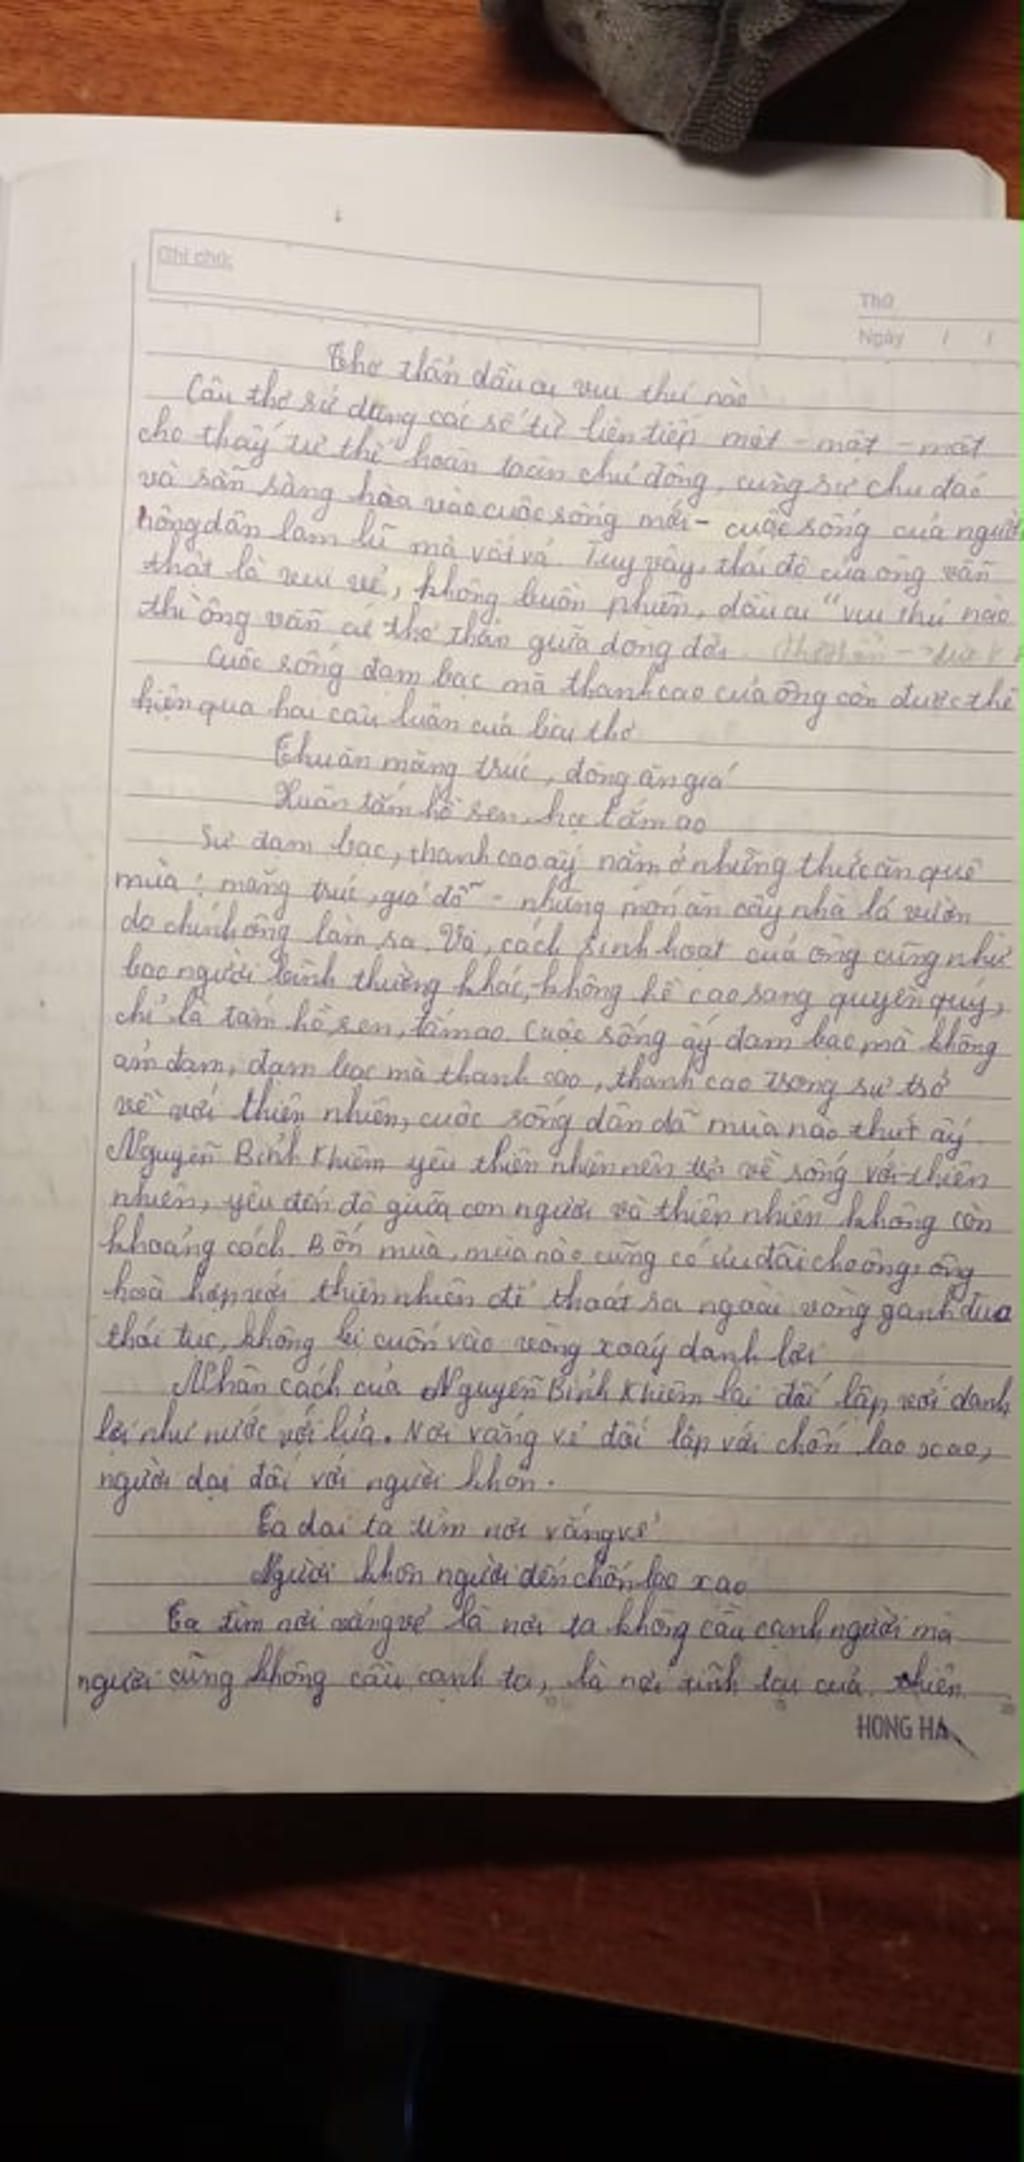 Ghi chú:
Thứ
Ngày / /
Thơ thẩn dầu ai vui thú nào
Câu thơ sử dụng các số từ liên tiếp một - một - một
cho thấy tư thế hoàn toàn chủ động, cùng sự chu đáo
và sẵn sàng hòa vào cuộc sống mới - cuộc sống của người
nông dân lam lũ mà vất vả. Tuy vậy, thái độ của ông vẫn
thật là vui vẻ, không buồn phiền, dầu ai "vui thú nào
thì ông vẫn cứ thơ thẩn giữa dòng đời.
Cuộc sống đạm bạc mà thanh cao của ông còn được thể
hiện qua hai câu luận của bài thơ
Thu ăn măng trúc, đông ăn giá
Xuân tắm hồ sen, hạ tắm ao
Sự đạm bạc, thanh cao ấy nằm ở những thức ăn quê
mùa: măng trúc, giá đỗ - những món ăn cây nhà lá vườn
do chính ông làm ra. Và, cách sinh hoạt của ông cũng như
bao người bình thường khác, không hề cao sang quyền quý,
chỉ là tắm hồ sen, tắm ao. Cuộc sống ấy đạm bạc mà không
ảm đạm, đạm bạc mà thanh cao, thanh cao trong sự trở
về với thiên nhiên, cuộc sống dân dã mùa nào thức ấy.
Nguyễn Bỉnh Khiêm yêu thiên nhiên nên trở về sống với thiên
nhiên, yêu đến độ giữa con người và thiên nhiên không còn
khoảng cách. Bốn mùa, mùa nào cũng có ưu đãi cho ông, ông
hoà hợp với thiên nhiên để thoát ra ngoài vòng ganh đua
thói tục, không bị cuốn vào vòng xoáy danh lợi
Nhân cách của Nguyễn Bỉnh Khiêm lại đối lập với danh
lợi như nước với lửa. Nơi vắng vẻ đối lập với chốn lao xao,
người dại đối với người khôn.
Ta dại ta tìm nơi vắng vẻ
Người khôn người đến chốn lao xao
Ta tìm nơi vắng vẻ là nơi ta không cầu cạnh người mà
người cũng không cầu cạnh ta, là nơi tĩnh tại của thiên
HONG HA